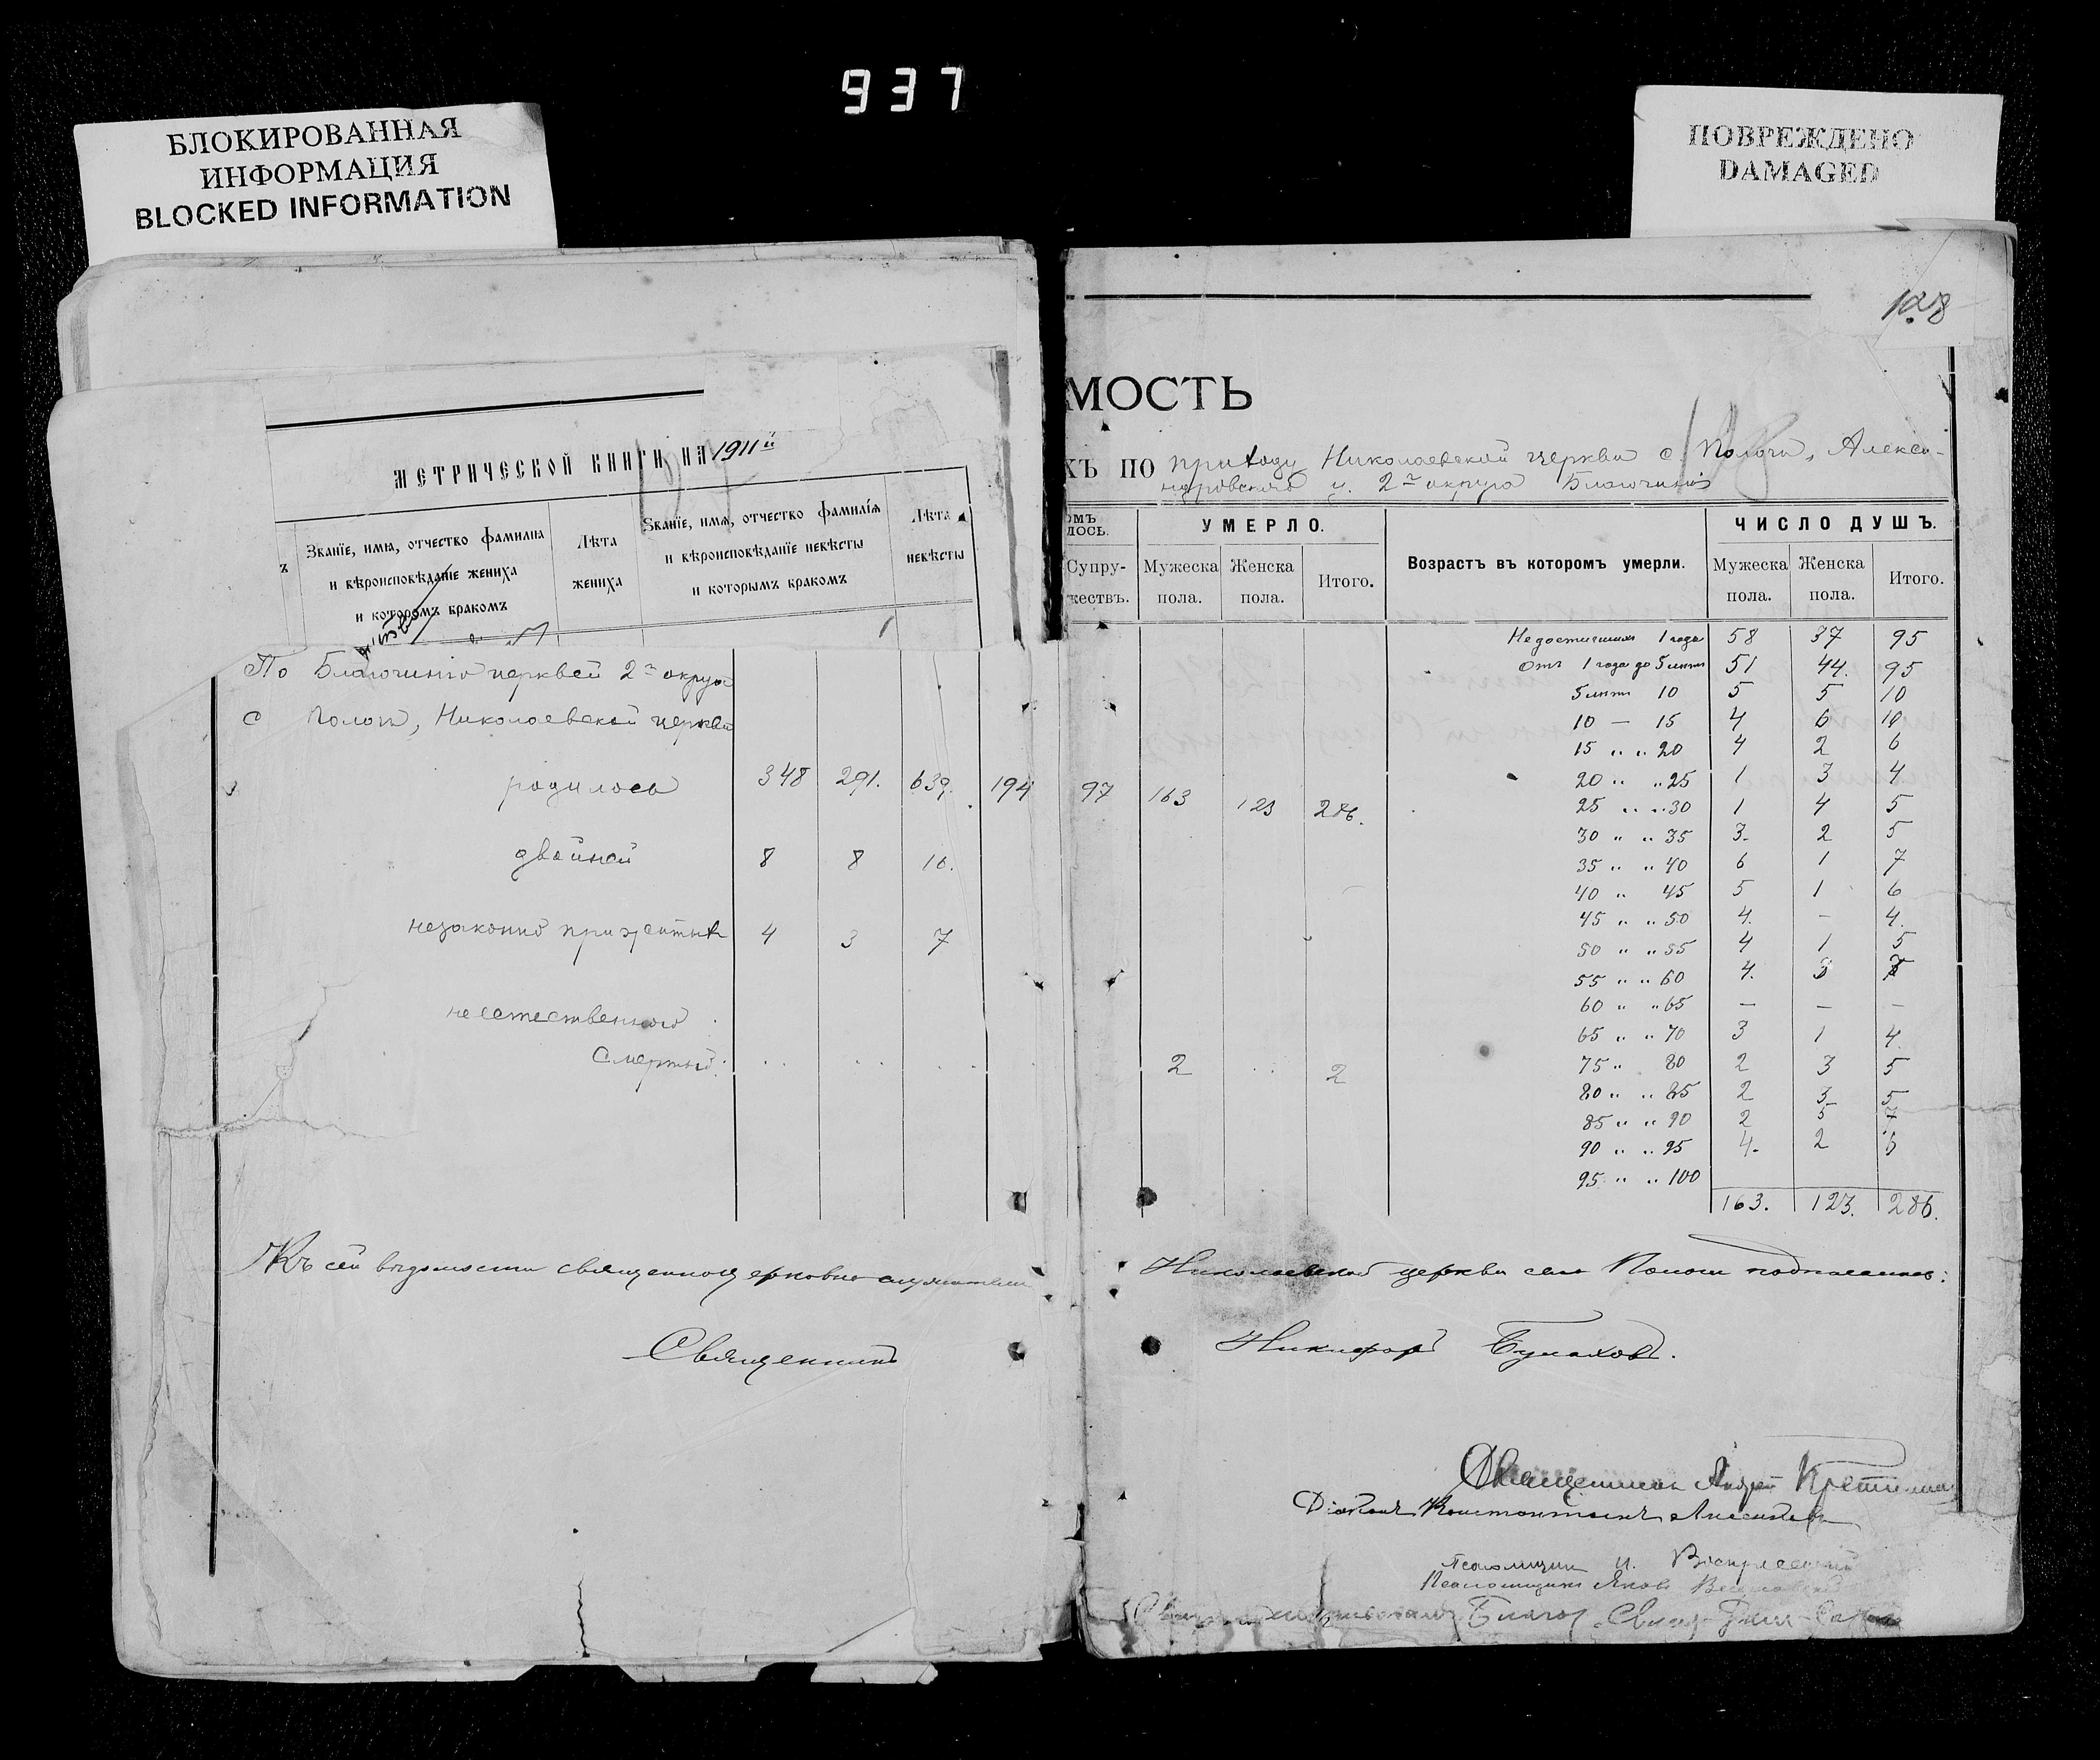 937
БЛОКИРОВАННАЯ
ИНФОРМАЦИЯ
BLOCKED INFORMATION
ПОВРЕЖДЕНО
DAMAGED
128
МЕТРИЧЕСКОЙ КНИГИ НА 1911й
Званїе, имя, отчество фамилиа
и вѣроисповѣданїе жениха
и которомъ бракомъ
Лѣта
жениха
Званїе, имя, отчество фамилїя
и вѣроисповѣданїе невѣсты
и которымъ бракомъ
Лѣта
невѣсты
По Благочинію церквей 2го округа
с Пологи, Николаевской церкви
родилось 348 291. 639. 194
двойней 8 8 16.
незаконно прижитыхъ 4 3 7
неестественной
смертью
Къ сей вѣдомости священноцерковно служители
Священникъ
МОСТЬ
ХЪ ПО приходу Николаевской церкви с. Пологи, Алекса-
ндровского у. 2го округа Благочинія
ОМЪ
ЛОСЬ.
УМЕРЛО.
Возрастъ въ которомъ умерли.
ЧИСЛО ДУШЪ.
Супру-
жествъ.
Мужеска
пола.
Женска
пола.
Итого.
Мужеска
пола.
Женска
пола.
Итого.
97 163 123 286.
2 2
Недостигшихъ 1 года 58 37 95
Отъ 1 года до 5 лѣтъ 51 44. 95
5 лѣтъ 10 5 5 10
10 — 15 4 6 10
15 " " 20 4 2 6
20 " " 25 1 3 4
25 " " 30 1 4 5
30 " " 35 3. 2 5
35 " " 40 6 1 7
40 " 45 5 1 6
45 " " 50 4. – 4.
50 " " 55 4 1 5
55 " " 60 4. 3 7
60 " " 65 — — —
65 " " 70 3 1 4.
75 " 80 2 3 5
80 " " 85 2 3 5
85 " " 90 2 5 7
90 " " 95 4. 2 6
95 " " 100
163. 123. 286.
Николаевской церкви села Пологи подписались:
Никифоръ Булаховъ.
Священникъ Андрей
Діаконъ Константинъ
Псаломщикъ И. Воскресенскій
Псаломщикъ Яковъ